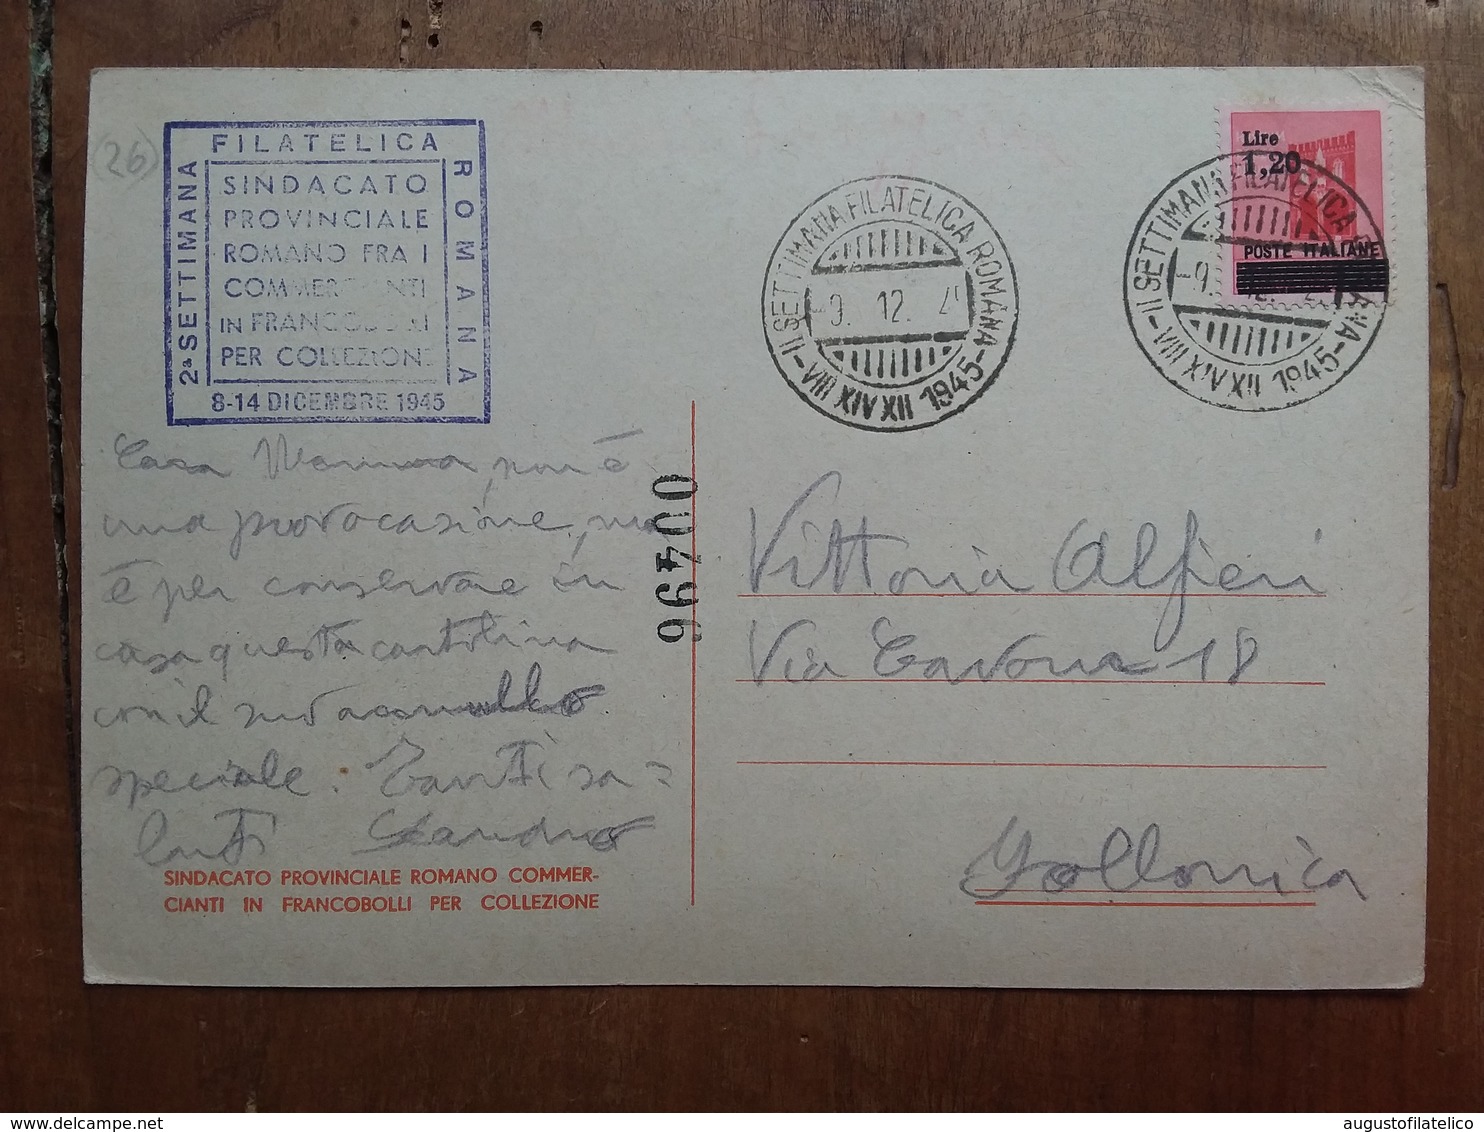 (26)
FILATELICA
2ª SETTIMANA
ROMANA
SINDACATO
PROVINCIALE
ROMANO FRA I
COMMERCIANTI
IN FRANCOBOLLI
PER COLLEZIONE
8-14 DICEMBRE 1945
II SETTIMANA FILATELICA ROMANA
-9. 12. 4
VIII XIV XII 1945
Lire
1,20
POSTE ITALIANE
II SETTIMANA FILATELICA ROMANA
-9. 12.
VIII XIV XII 1945
Cara Mamma, non è
una provocazione, ma
è per conservare in
casa questa cartolina
con il suo annullo
speciale. Tanti sa=
luti Sandro
00496
Vittoria Alfieri
Via Cavour 18
Follonica
SINDACATO PROVINCIALE ROMANO COMMER-
CIANTI IN FRANCOBOLLI PER COLLEZIONE
augustofilatelico